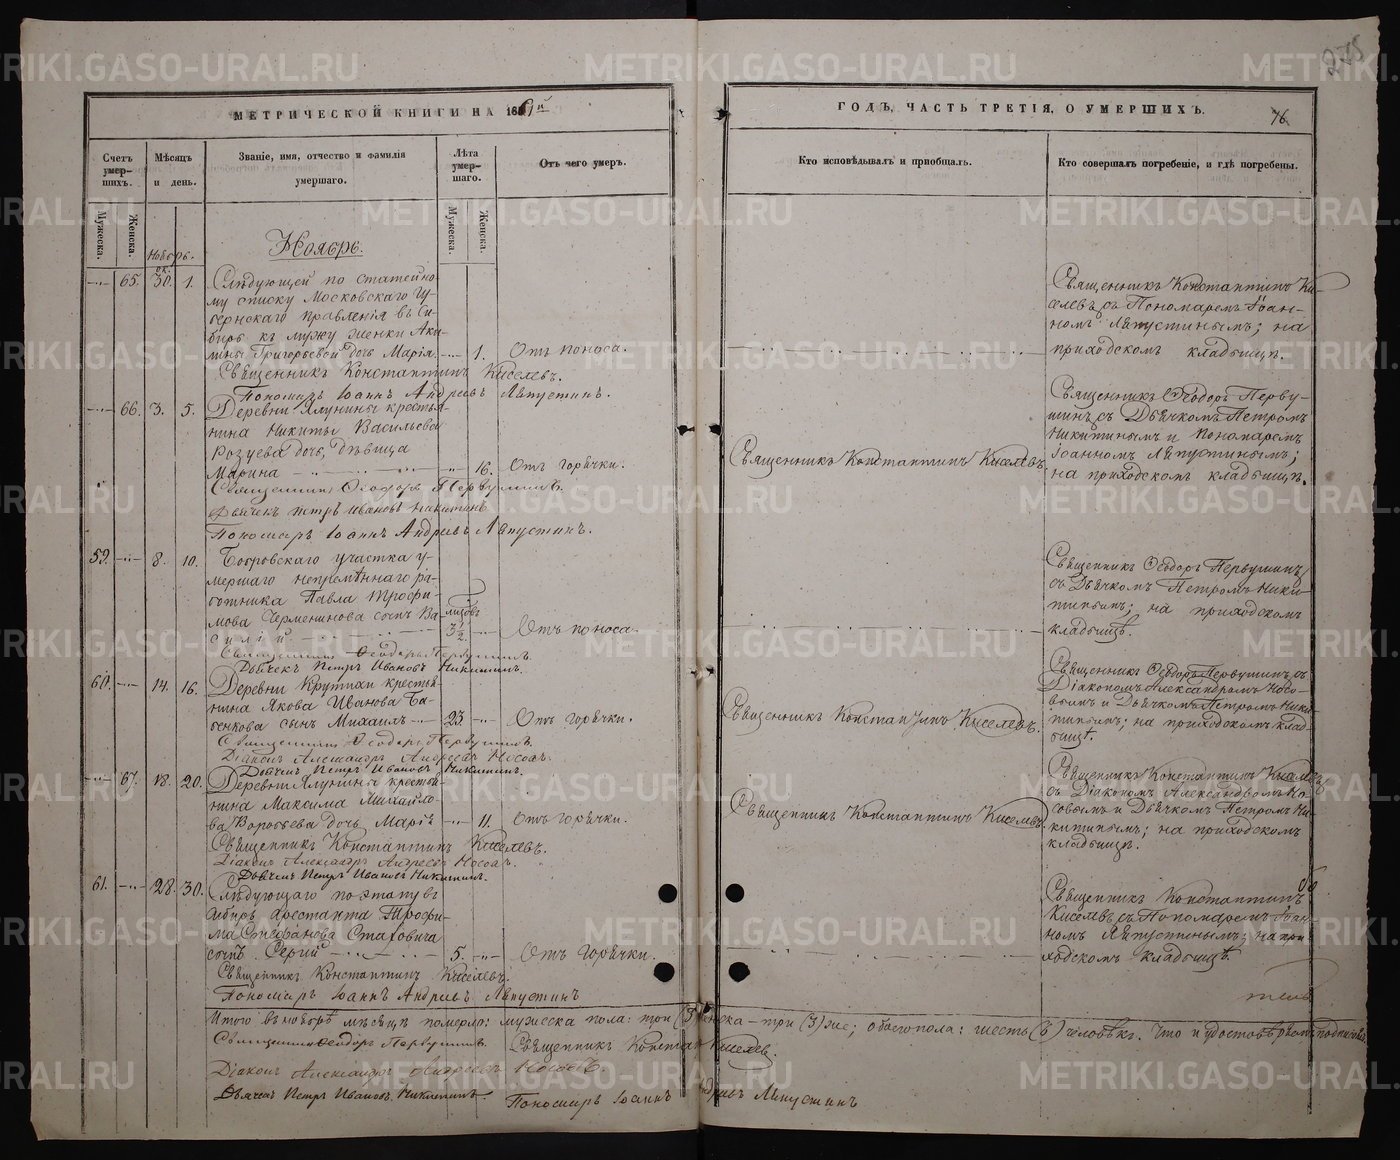 275
МЕТРИЧЕСКОЙ КНИГИ НА 1861й
ГОДЪ, ЧАСТЬ ТРЕТІЯ, О УМЕРШИХЪ.
76
Счетъ умерших.
Мѣсяцъ и день.
Званіе, имя, отчество и фамилія умершаго.
Лѣта умершаго.
Отъ чего умеръ.
Кто исповѣдывалъ и пріобщалъ.
Кто совершалъ погребеніе, и гдѣ погребены.
Мужеска.
Женска.
Мужеска.
Женска.
Ноябрь.
Ноябрь.
65. 30. 1.
Слѣдующей по статейно-
му списку Московскаго Гу-
бернскаго правленія въ Си-
бирь къ мужу женки Аку-
лины Григорьевой дочь Марія. 1. Отъ поноса.
Священникъ Константинъ Киселевъ.
Пономарь Іоаннъ Андреевъ Ляпустинъ.
Священникъ Константинъ Ки-
селевъ съ Пономаремъ Іоан-
номъ Ляпустинымъ; на
приходскомъ кладбищѣ.
66. 3. 5.
Деревни Ялунины крестья-
нина Никиты Васильева
дочь, дѣвица
Марина 16. Отъ горячки.
Священникъ Ѳеодоръ Первушинъ.
Дьячекъ Петръ Ивановъ Никитинъ.
Пономарь Іоаннъ Андреевъ Ляпустинъ.
Священникъ Константинъ Киселевъ.
Священникъ Ѳеодоръ Перву-
шинъ, съ Дьячкомъ Петромъ
Никитинымъ и Пономаремъ
Іоанномъ Ляпустинымъ;
на приходскомъ кладбищѣ.
59. 8. 10.
участка у-
мершаго непремѣннаго ра-
ботника Павла Трофи-
мова сынъ Ва-
силій 3½ Отъ поноса.
Священникъ Ѳеодоръ Первушинъ.
Дьячекъ Петръ Ивановъ Никитинъ.
Священникъ Ѳеодоръ Первушинъ,
съ Дьячкомъ Петромъ Ники-
тинымъ; на приходскомъ
кладбищѣ.
60. 14. 16.
Деревни Крутихи крестья-
нина Якова Иванова Ба-
бенкова сынъ Михаилъ 23 Отъ горячки.
Священникъ Ѳеодоръ Первушинъ.
Діаконъ Александръ Андреевъ Носовъ.
Дьячекъ Петръ Ивановъ Никитинъ.
Священникъ Константинъ Киселевъ.
Священникъ Ѳеодоръ Первушинъ, съ
Діакономъ Александромъ Носо-
вымъ и Дьячкомъ Петромъ Ники-
тинымъ; на приходскомъ клад-
бищѣ.
67. 18. 20.
Деревни Ялунины крестья-
нина Максима Михайло-
ва Воробьева дочь Марія 11. Отъ горячки.
Священникъ Константинъ Киселевъ.
Діаконъ Александръ Андреевъ Носовъ.
Дьячекъ Петръ Ивановъ Никитинъ.
Священникъ Константинъ Киселевъ.
Священникъ Константинъ Киселевъ
съ Діакономъ Александромъ Но-
совымъ и Дьячкомъ Петромъ Ни-
китинымъ; на приходскомъ
кладбищѣ.
61. 28. 30.
Слѣдующаго по этапу въ
Сибирь арестанта Трофи-
ма Стефанова Стаховича
сынъ Сергій 5. Отъ горячки.
Священникъ Константинъ Киселевъ.
Пономарь Іоаннъ Андреевъ Ляпустинъ
Священникъ Константинъ
Киселевъ съ Пономаремъ Іоан-
номъ Ляпустинымъ; на при-
ходскомъ кладбищѣ.
Итого въ ноябрѣ мѣсяцѣ померло: мужеска пола: три (3) женска – три (3) же; обоего пола: шесть (6) человѣкъ. Что и удостовѣряютъ
Священникъ Ѳеодоръ Первушинъ.
Священникъ Константинъ Киселев.
Діаконъ Александръ Андреевъ Носовъ.
Дьячекъ Петръ Ивановъ Никитинъ.
Пономарь Іоаннъ Андреевъ Ляпустинъ
METRIKI.GASO-URAL.RU